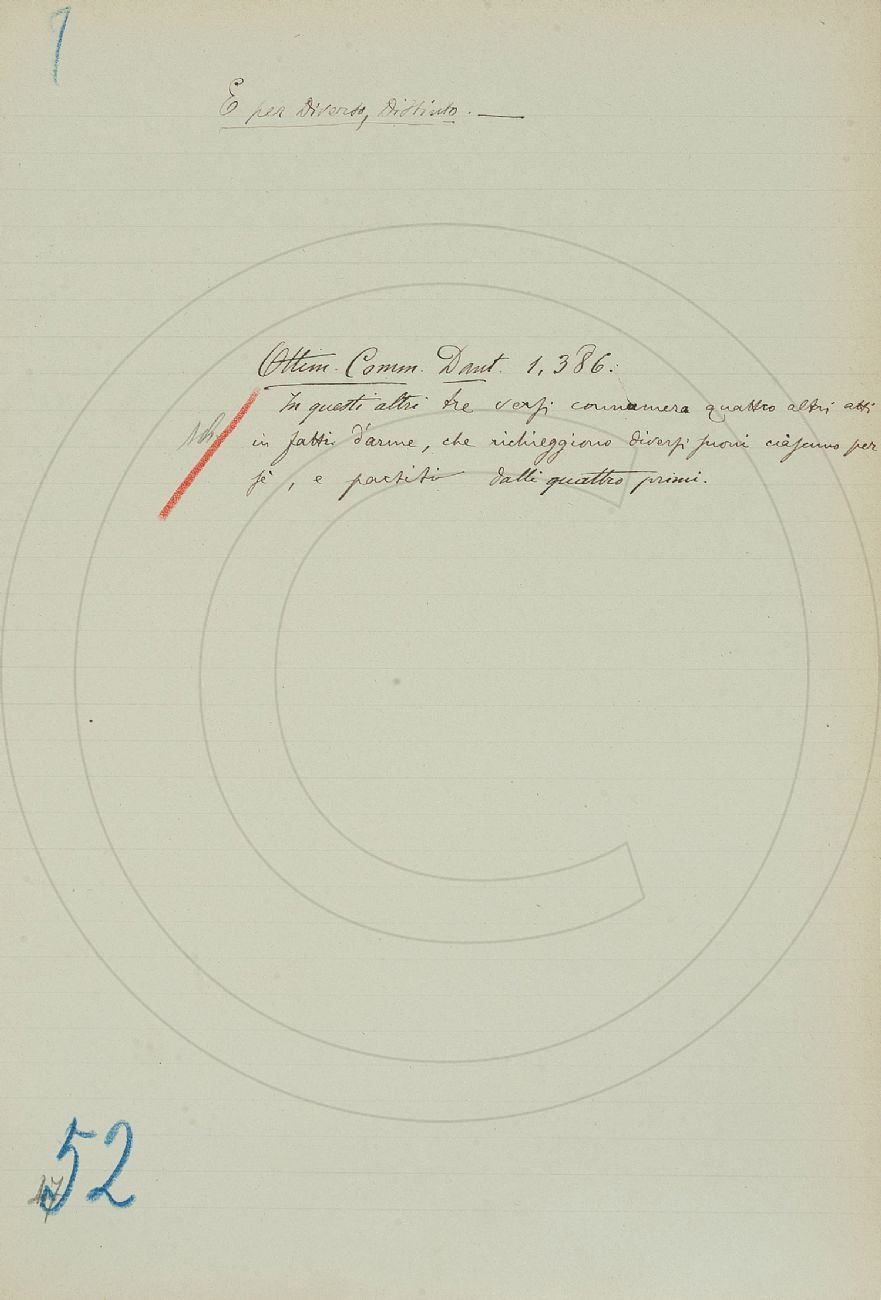 E per Diverso, Distinto. —
Ottim. Comm. Dant. 1, 386.
In questi altri tre versi connumera quattro altri atti
in fatti d'arme, che richieggiono diversi suoni ciascuno per
sè, e partiti dalli quattro primi.
52
47